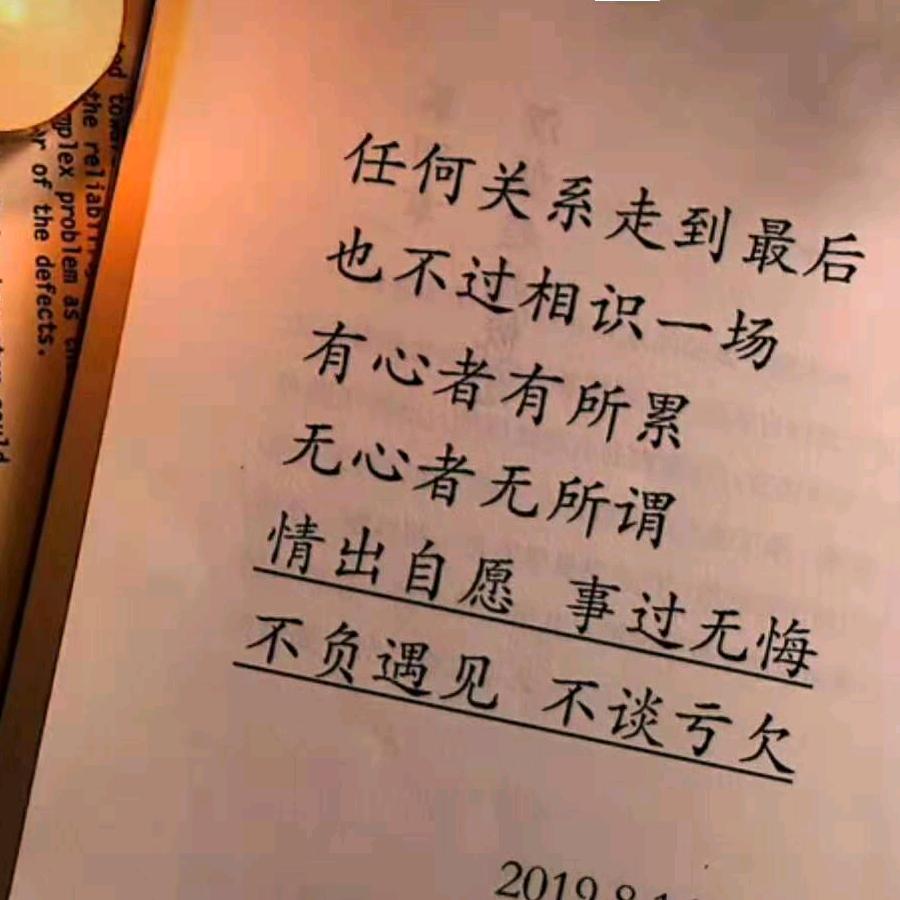 任何关系走到最后
也不过相识一场
有心者有所累
无心者无所谓
情出自愿 事过无悔
不负遇见 不谈亏欠
2019.8.1
the reliab
mplex problem as
r of the defects.